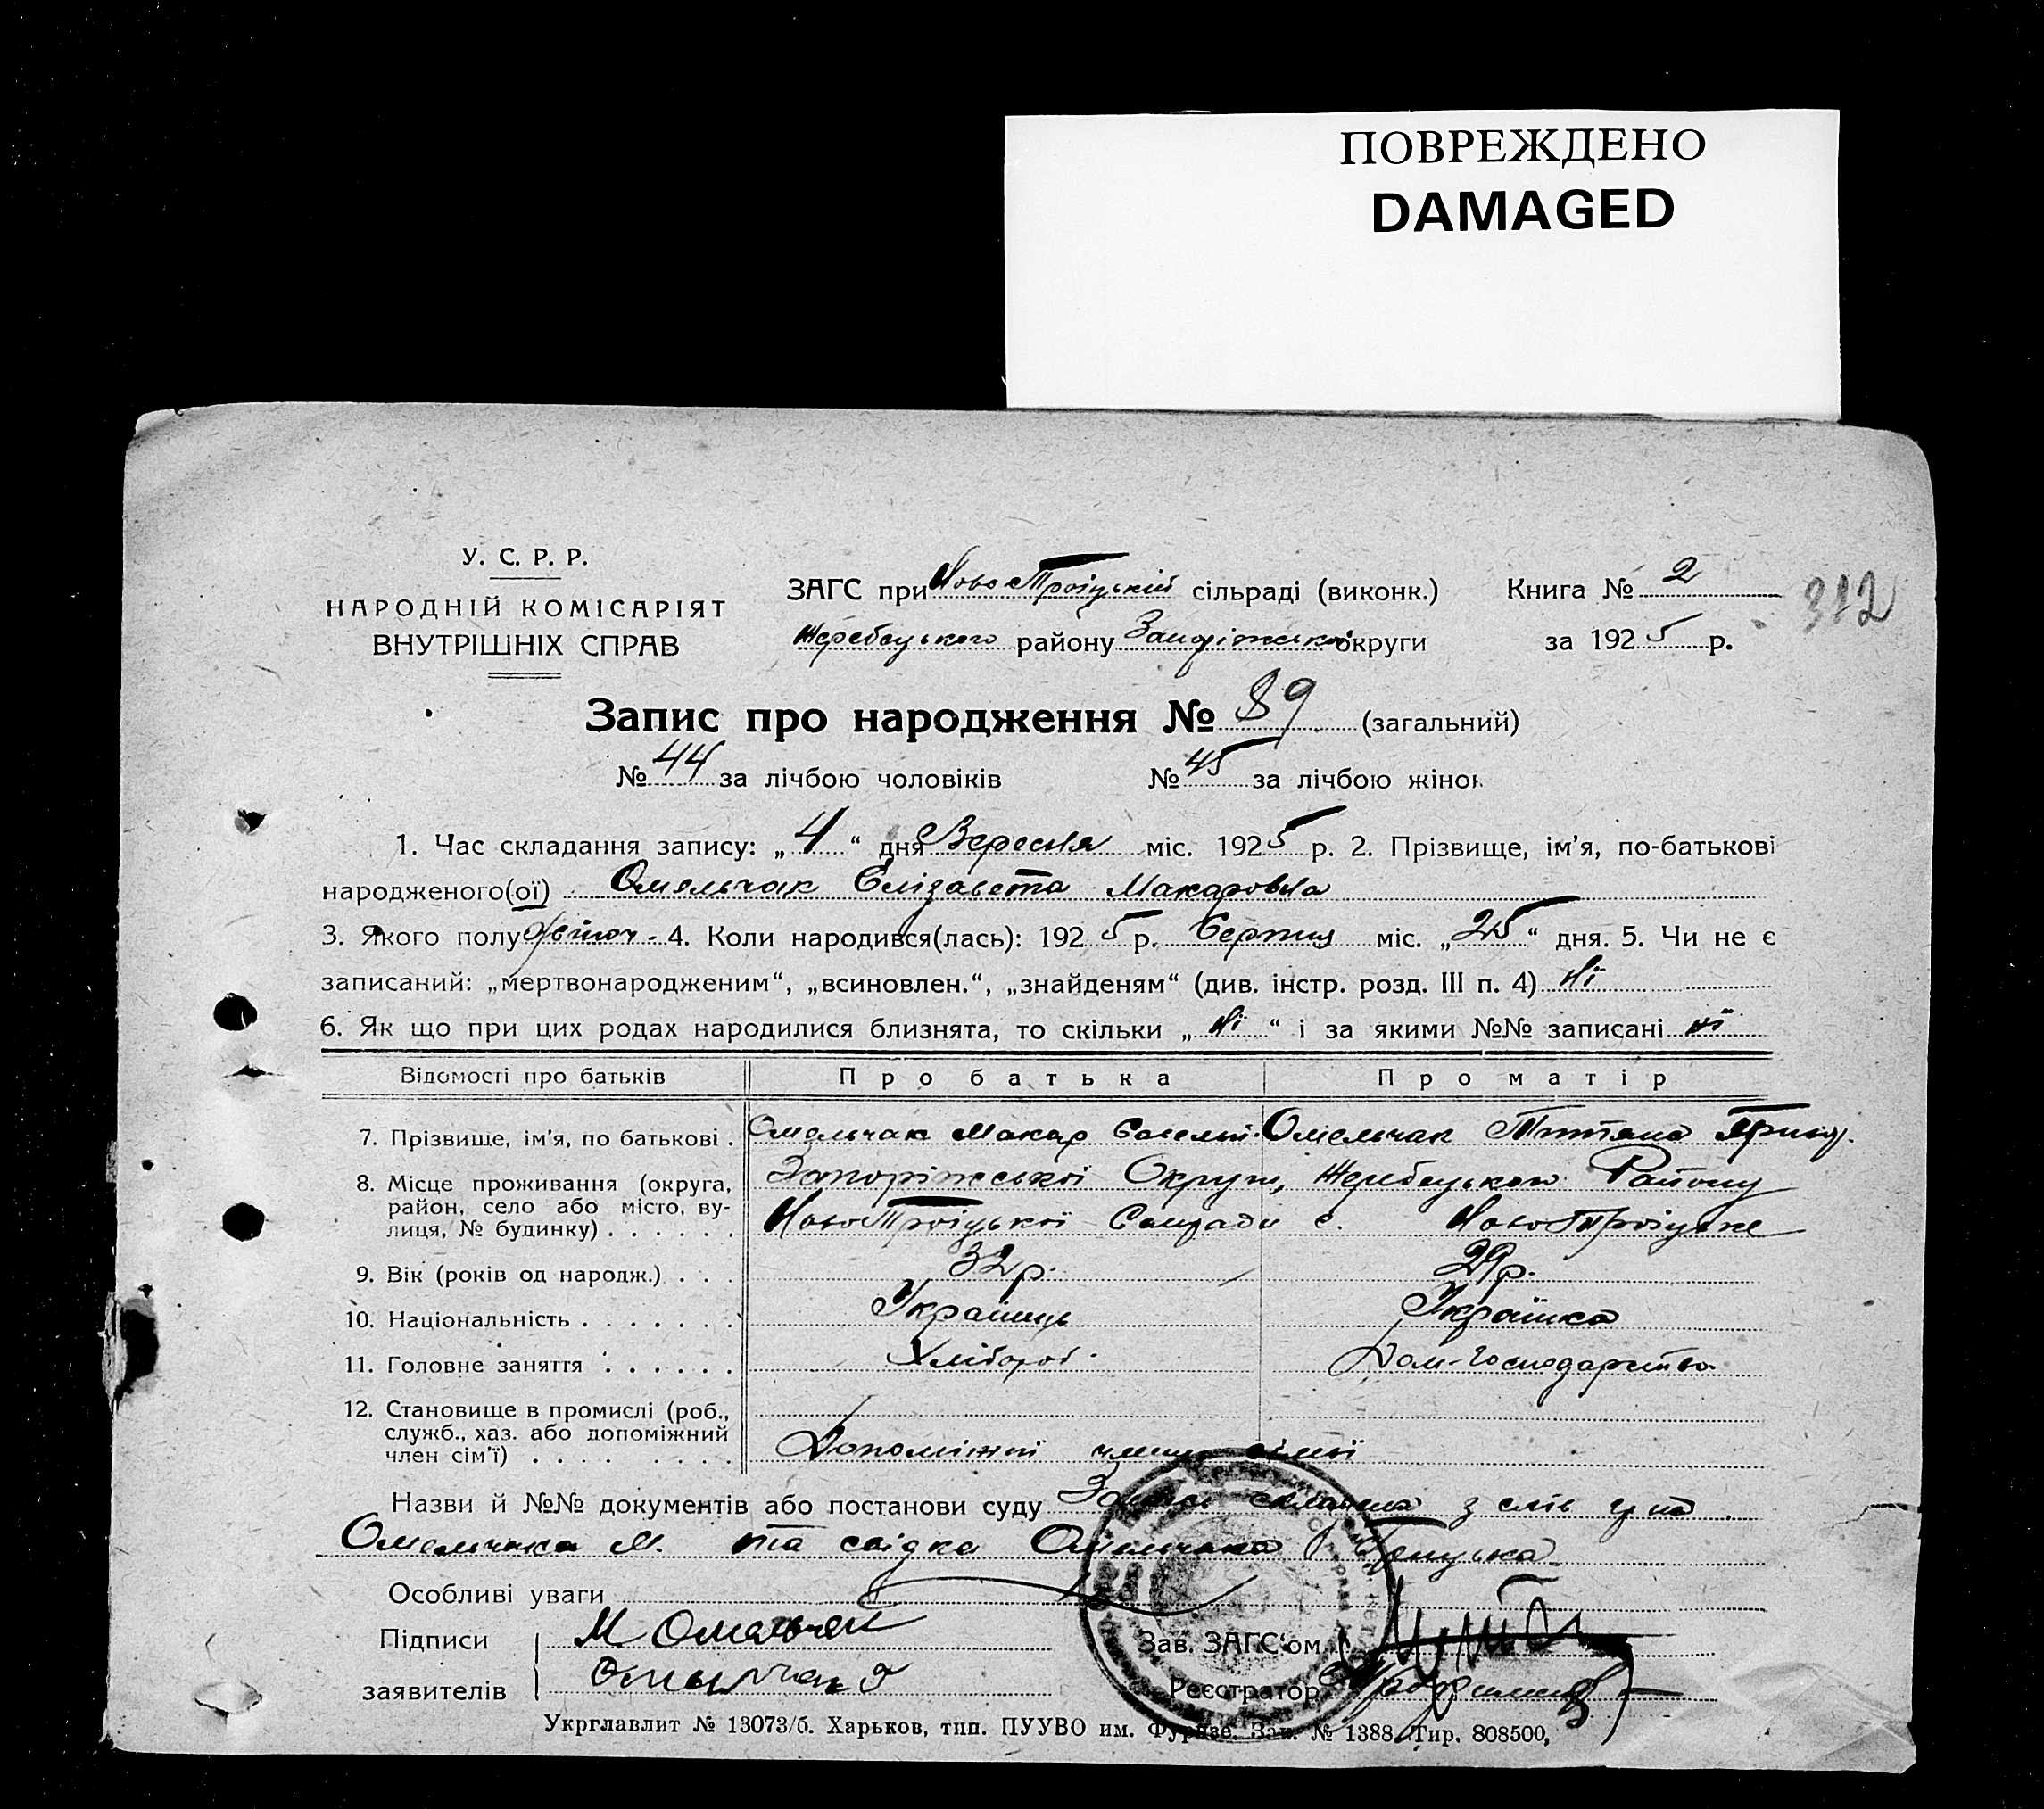 ПОВРЕЖДЕНО
DAMAGED
У. С. Р. Р.
НАРОДНІЙ КОМІСАРІЯТ
ВНУТРІШНІХ СПРАВ
ЗАГС при Ново Троіцькій сільраді (виконк.) Книга № 2
312
Жеребецького району округи за 1925 р.
Запис про народження № 89 (загальний)
№ 44 за лічбою чоловіків № 45 за лічбою жінок
1. Час складання запису: „4“ дня Вересня міс. 1925 р. 2. Прізвище, ім'я, по-батькові
народженого(ої) Омельчак Єлізавета Макаровна
3. Якого полу жіноч. 4. Коли народився(лась): 1925 р. Серпня міс. „25“ дня. 5. Чи не є
записаний: „мертвонародженим“, „всиновлен.“, „знайденям“ (див. інстр. розд. III п. 4) ні
6. Як що при цих родах народилися близнята, то скільки „ні“ і за якими №№ записані ні
Відомості про батьків Про батька Про матір
7. Прізвище, ім'я, по батькові . Омельчак Макар Омельчак Тетяна
8. Місце проживання (округа, район, село або місто, вулиця, № будинку) . . . . . . Запоріжської Округи, Жеребецького Району
НовоТроіцької Сельради с. НовоТроіцьке
9. Вік (років од народж.) . . . 32 р. 29 р.
10. Національність . . . . . . . Українець Українка
11. Головне заняття . . . . . . Хлібороб. Дом-Господарство
12. Становище в промислі (роб.,
служб., хаз. або допоміжний
член сім'ї) . . . . . . . . Допоміжні члени сімьі
Назви й №№ документів або постанови суду Запис складено з слів гр-на
Омельчака М. та свідка Омельчака
Особливі уваги
Підписи М Омельчак Зав. ЗАГС'ом
заявителів Реєстратор
Укрглавлит № 13073/б. Харьков, тип. ПУУВО им. Фрунзе. Зак. № 1388. Тир. 808500,